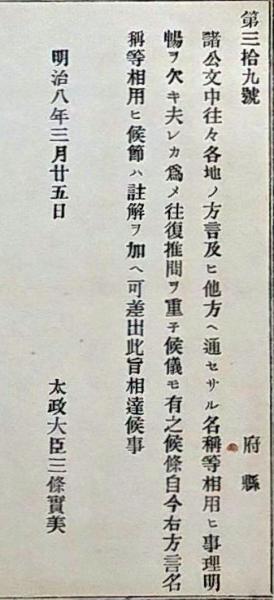 第三拾九號
府縣
諸公文中往々各地ノ方言及ヒ他方ヘ通セサル名稱等相用ヒ事理明
暢ヲ欠キ夫レカ爲メ往復推問ヲ重子候儀モ有之候條自今右方言名
稱等相用ヒ候節ハ註解ヲ加ヘ可差出此旨相達候事
明治八年三月廿五日
太政大臣三條實美